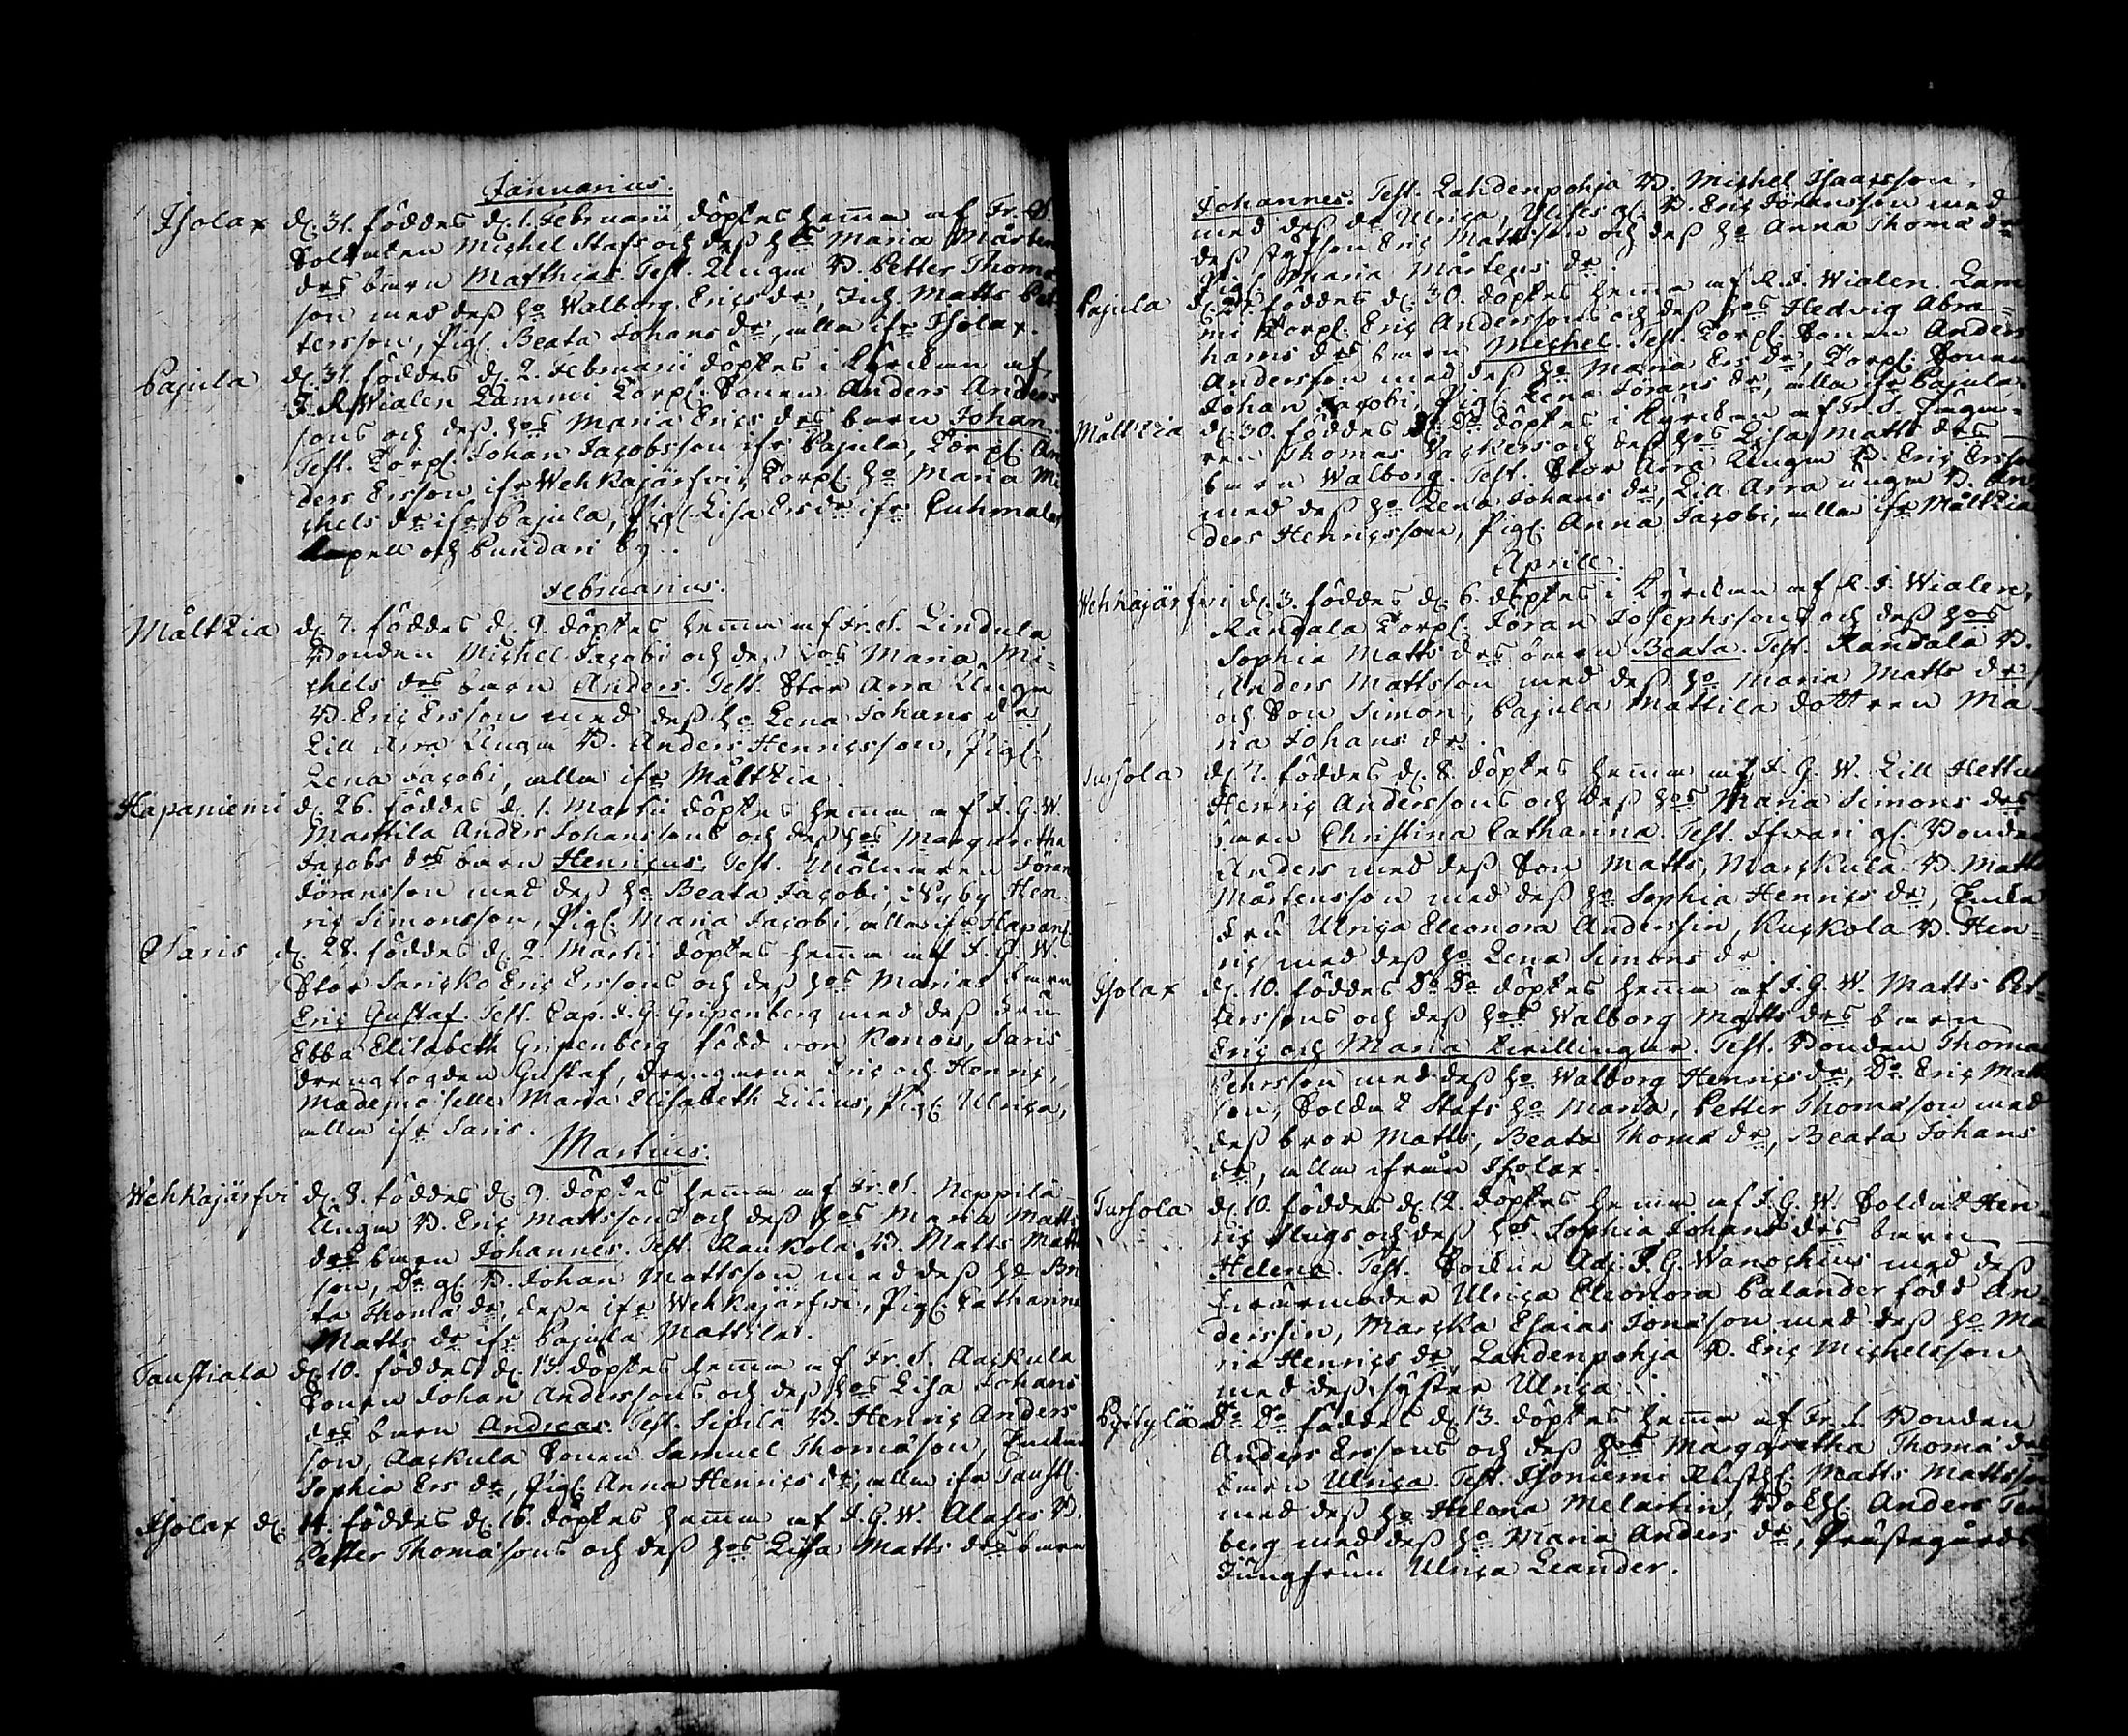 Januarius.
Isolax d. 31. föddes d. 1. Februarii döptes hemma af Fr. S.
Soldaten Michel Stafs och dess hos Maria Mårtens
drs barn Matthias. Test. Ungm B. Petter Thoma
son med dess ho Walborg Erics dr, Inh. Matts Pet-
tersson, Pig. Beata Johans dr, alla ifr Isolax.
Pajula d. 31. föddes d. 2. Februarii döptes i Kyrckan af
J. R. Wialen Lammi Torp. Sonen Anders Anders
sons och dess hos Maria Erics drs barn Johan.
Test. Torp. Johan Jacobsson ifr Pajula, Torp. An
ders Ersson ifr Wehkajärfvi, Torp. ho Maria Mi
chels dr ifr Pajula, Pig. Lisa Ers dr ifr Kuhmalax
Capell och Pundari by.
Februarius.
Måltzia d. 7. föddes d. 9. döptes hemma af Fr. S. Lindula
Bonden Michel Jacobi och dess hos Maria Mi-
chels drs barn Anders. Test. Stor Arra Ungm
B. Eric Ersson med dess ho Lena Johans dr,
Lill Arra Ungm B. Anders Henricsson, Pig.
Lena Jacobi, alla ifr Måltzia.
Hapaniemi d. 26. föddes d. 1. Martii döptes hemma af J. G. W.
Marttila Anders Johanssons och dess hos Margaretha
Jacobs drs barn Henricus. Test. Mölnaren Jöran
Jöransson med dess ho Beata Jacobi, Nyby Hen
ric Simonsson, Pig. Maria Jacobi, alla ifr Hapani.
Saris d. 28. föddes d. 2. Martii döptes hemma af J. G. W.
Stor Saricko Eric Erssons och dess hos Marias barn
Eric Gustaf. Test. Cap. J. G. Gripenberg med dess Fru
Ebba Elisabeth Gripenberg född von Konow, Saris
drengfogden Gustaf, Drengarne Eric och Henric,
Mademoiselle Maria Elisabeth Lilius, Pig. Ulrica,
alla ifr Saris.
Martius.
Wehkajärfvi d. 8. föddes d. 9. döptes hemma af Fr. S. Noppila
Ungm B. Eric Mattssons och dess hos Maria Matts
drs barn Johannes. Test. Raukola B. Matts Matts
son, Do gl. B. Johan Mattsson med dess ho Bri
ta Thomæ dr, desse ifr Wehkajärfvi, Pig. Catharina
Matts dr ifr Pajula Mattila.
Taustiala d. 10. föddes d. 13. döptes hemma af Fr. S. Aackula
Sonen Johan Anderssons och dess hos Lisa Johans
drs barn Andreas. Test. Sipilä B. Henric Anders
son, Aackula Sonen Samuel Thomæson, Enckan
Sophia Ers dr, Pig. Anna Henrics dr, alla ifr Taust.
Isolax d. 14. föddes d. 16. döptes hemma af J. G. W. Alases B.
Petter Thomæsons och dess hos Lisa Matts drs barn
Johannes. Test. Lahdenpohja B. Michel Isaacsson
med dess dr Ulrica, Ylises gl. B. Eric Jöransson med
dess styfson Eric Mattsson och dess ho Anna Thomæ dr
Pig. Maria Mårtens dr.
Pajula d. 29. föddes d. 30. döptes hemma af R. J. Wialen. Lam
mi Torp. Eric Anderssons och dess hos Hedvig Abra-
hams drs barn Michel. Test. Torp. Sonen Anders
Andersson med dess ho Maria Ers dr, Torp. Sonen
Johan Jacobi, Pig. Lena Jörans dr, alla ifr Pajula.
Måltzia d. 30. föddes d. Do döptes i Kyrckan af Fr. S. Jäga-
ren Thomas Vackers och dess hos Lisa Matts drs
barn Walborg. Test. Stor Arra Ungm B. Eric Ersson
med dess ho Lena Johans dr, Lill Arra ungm B. An
ders Henricsson, Pig. Anna Jacobi, alla ifr Måltzia
Aprill.
Wehkajärfvi d. 3. föddes d. 6. döptes i Kyrckan af R. J. Wialen,
Randala Torp. Jöran Josephssons och dess hos
Sophia Matts drs barn Beata. Test. Randala B.
Anders Mattsson med dess ho Maria Matts dr,
och Son Simon, Pajula Mattila dottren Ma-
ria Johans dr.
Tursola d. 7. föddes d. 8. döptes hemma af J. G. W. Lill Hettu
Henric Anderssons och dess hos Maria Simons drs
barn Christina Catharina. Test. Ifvari gl. Bonden
Anders med dess Son Matts, Marckula B. Matts
Mårtensson med dess ho Sophia Henrics dr, Encke
Fru Ulrica Eleonora Anderssin, Kuckola B. Hen-
ric med dess ho Lena Simons dr.
Isolax d. 10. föddes Do Do döptes hemma af J. G. W. Matts Pet-
terssons och dess hos Walborg Matts drs barn
Eric och Maria tvillingar. Test. Bonden Thomas
Pehrsson med dess ho Walborg Henrics dr, Do Eric Matts
son, Soldat Stafs ho Maria, Petter Thomæson med
dess bror Matts, Beata Thomæ dr, Beata Johans
dr, alla ifrån Isolax.
Tursola d. 10. föddes d. 12. döptes hemma af J. G. W. Soldat Hen-
ric Flugs och dess hos Sophia Johans drs barn
Helena. Test. Sockne Adj. J. G. Wanochius med dess
Svärmoder Ulrica Eleonora Palander född An-
derssin, Marcka Esaias Jonæson med dess ho Ma
ria Henrics dr, Lahdenpohja B. Eric Michelsson
med dess syster Ulrica.
Pytylä Do Do föddes d. 13. döptes hemma af Fr. S. Bonden
Anders Erssons och dess hos Margaretha Thomæ drs
barn Ulrica. Test. Isoniemi Matts Mattsson
med dess ho Helena Melartin, Anders Tam
berg med dess ho Maria Anders dr, Prästegårds
Jungfrun Ulrica Leander.